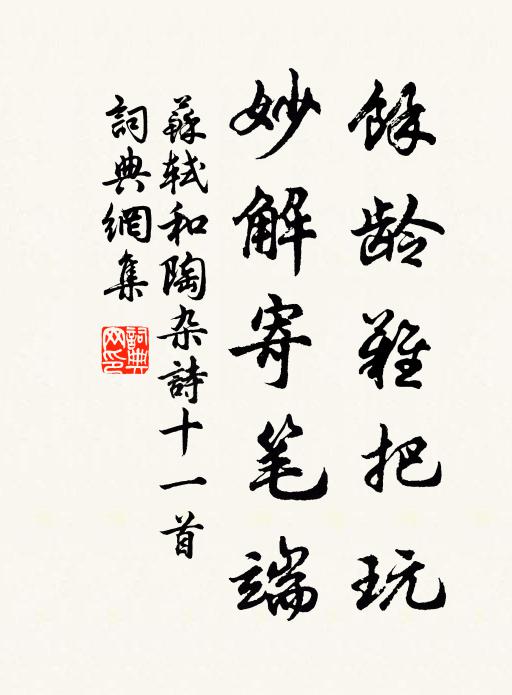 餘龄難把玩
妙解寄笔端
蘇轼和陶杂詩十一首
詞典網集
詞典网印